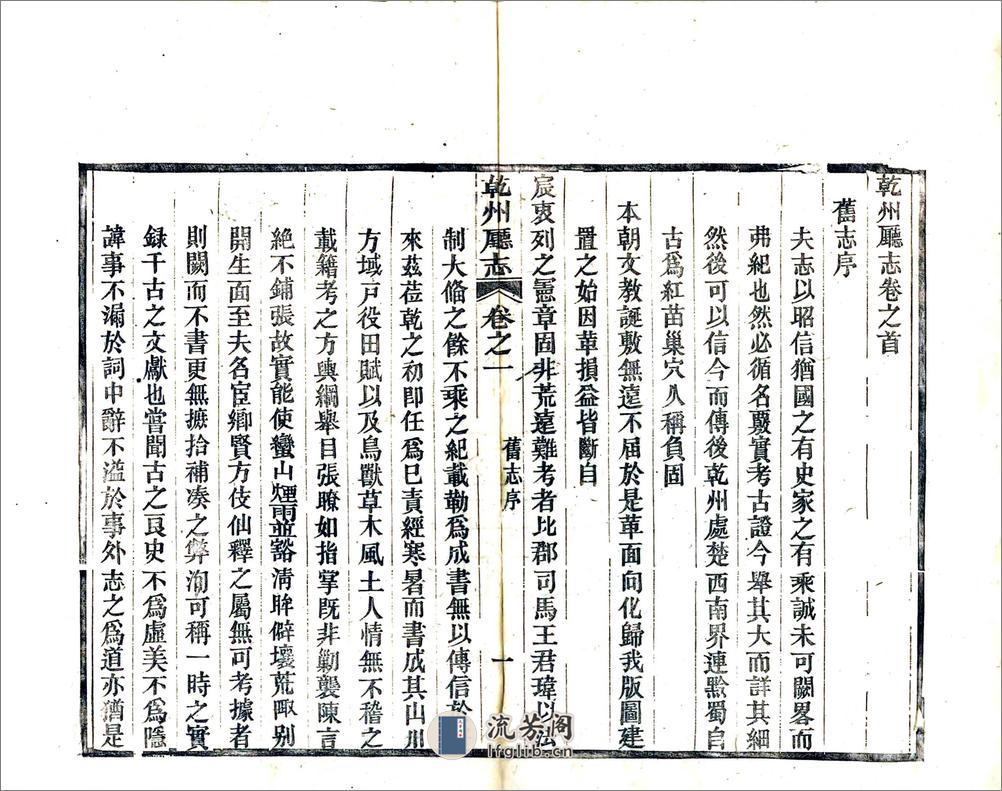 乾州廳志卷之首
舊志序
夫志以昭信猶國之有史家之有乘誠未可闕畧而
弗紀也然必循名覈實考古證今舉其大而詳其細
然後可以信今而傳後乾州處楚西南界連黔蜀自
古爲紅苗巢穴人稱負固
本朝文教誕敷無遠不届於是革面向化歸我版圖建
置之始因革損益皆斷自
宸衷列之憲章固非荒遠難考者比郡司馬王君瑋以宏
乾州廳志 卷之一 舊志序 一
制大偹之餘不乘之紀載勒爲成書無以傳信於
來茲莅乾之初即任爲已責經寒暑而書成其山川
方域戸役田賦以及鳥獸草木風土人情無不稽之
載籍考之方輿綱舉目張瞭如指掌既非勦襲陳言
絶不鋪張故實能使蠻山煙雨並豁清眸僻壤荒陬别
開生面至夫名宦鄉賢方伎仙釋之屬無可考據者
則闕而不書更無摭拾補凑之弊洵可稱一時之實
録千古之文獻也嘗聞古之良史不爲虛美不爲隱
諱事不漏於詞中辭不溢於事外志之爲道亦猶是
流芳阁
lfglib.cn